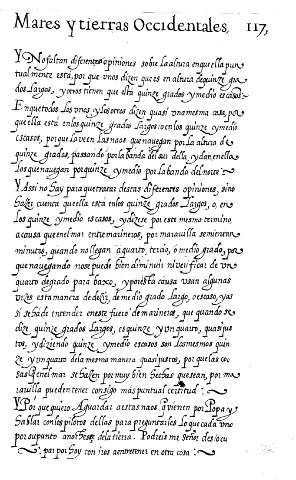 Mares y tierras Occidentales, 117,
Y No faltan diferentes opiniones sobre la altura en que ella pun
tualmente està, porque unos dizen que es en altura de quinze gra
dos Largos, y otros tienen que està quinze grados y medio escasos
En que todos los unos y los otros dizen quasi una mesma cosa, por
que ella està en los quinze grados Largos o en los quinze y medio
escasos, porque la veen las naos que navegan por la altura de
quinze grados, passando por la banda del sur della, y dan en ella
los que navegan por quinze y medio por la banda del norte
Y Assi no hay para que tratar destas diferentes opiniones, sino
hazer cuenta que ella està en los quinze grados Largos, o, en
los quinze y medio escasos, y dizese por este mesmo termino,
a causa que en el mar entre marineros, por maravilla se mientan
minutos, quando no llegan a quarto, tercio, o medio grado, por
que navegando no se puede bien diminuir ni verificar de un
quarto de grado para baxo, y por esta causa usan algunas
vezes esta manera de dezir, de medio grado largo, escaso, y assi
se ha de entender en este fuero de marineros, que quando se
dize quinze grados Largos, es quinze y un quarto, quasi jus
tos, y diziendo quinze y medio escasos son los mesmos quin
ze y un quarto de la mesma manera quasi justos, porque las co
sas que en el mar se hazen por muy bien hechas que sean, por ma
ravilla pueden tener consigo mas puntual certitud
Y Por que quiero Aguardar a estas naos que vienen por Popa y
hablar con los pilotos dellas para preguntarles lo que cada uno
por su punto a noche se haze de la tierra. Podreis me señor desseo
par por hoy con iros a entretener en otra cosa